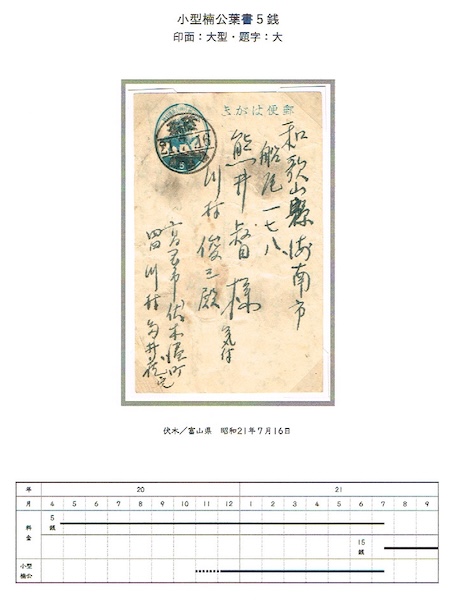 小型楠公葉書5銭
印面：大型・題字：大
郵便はがき
和歌山縣海南市
船尾一七八
熊井 様 気付
川村俊三殿
高岡市伏木
川村
21.7.16
伏木／富山県　昭和21年7月16日
年 20 21
月 4 5 6 7 8 9 10 11 12 1 2 3 4 5 6 7 8 9
料金 5銭 15銭
小型楠公